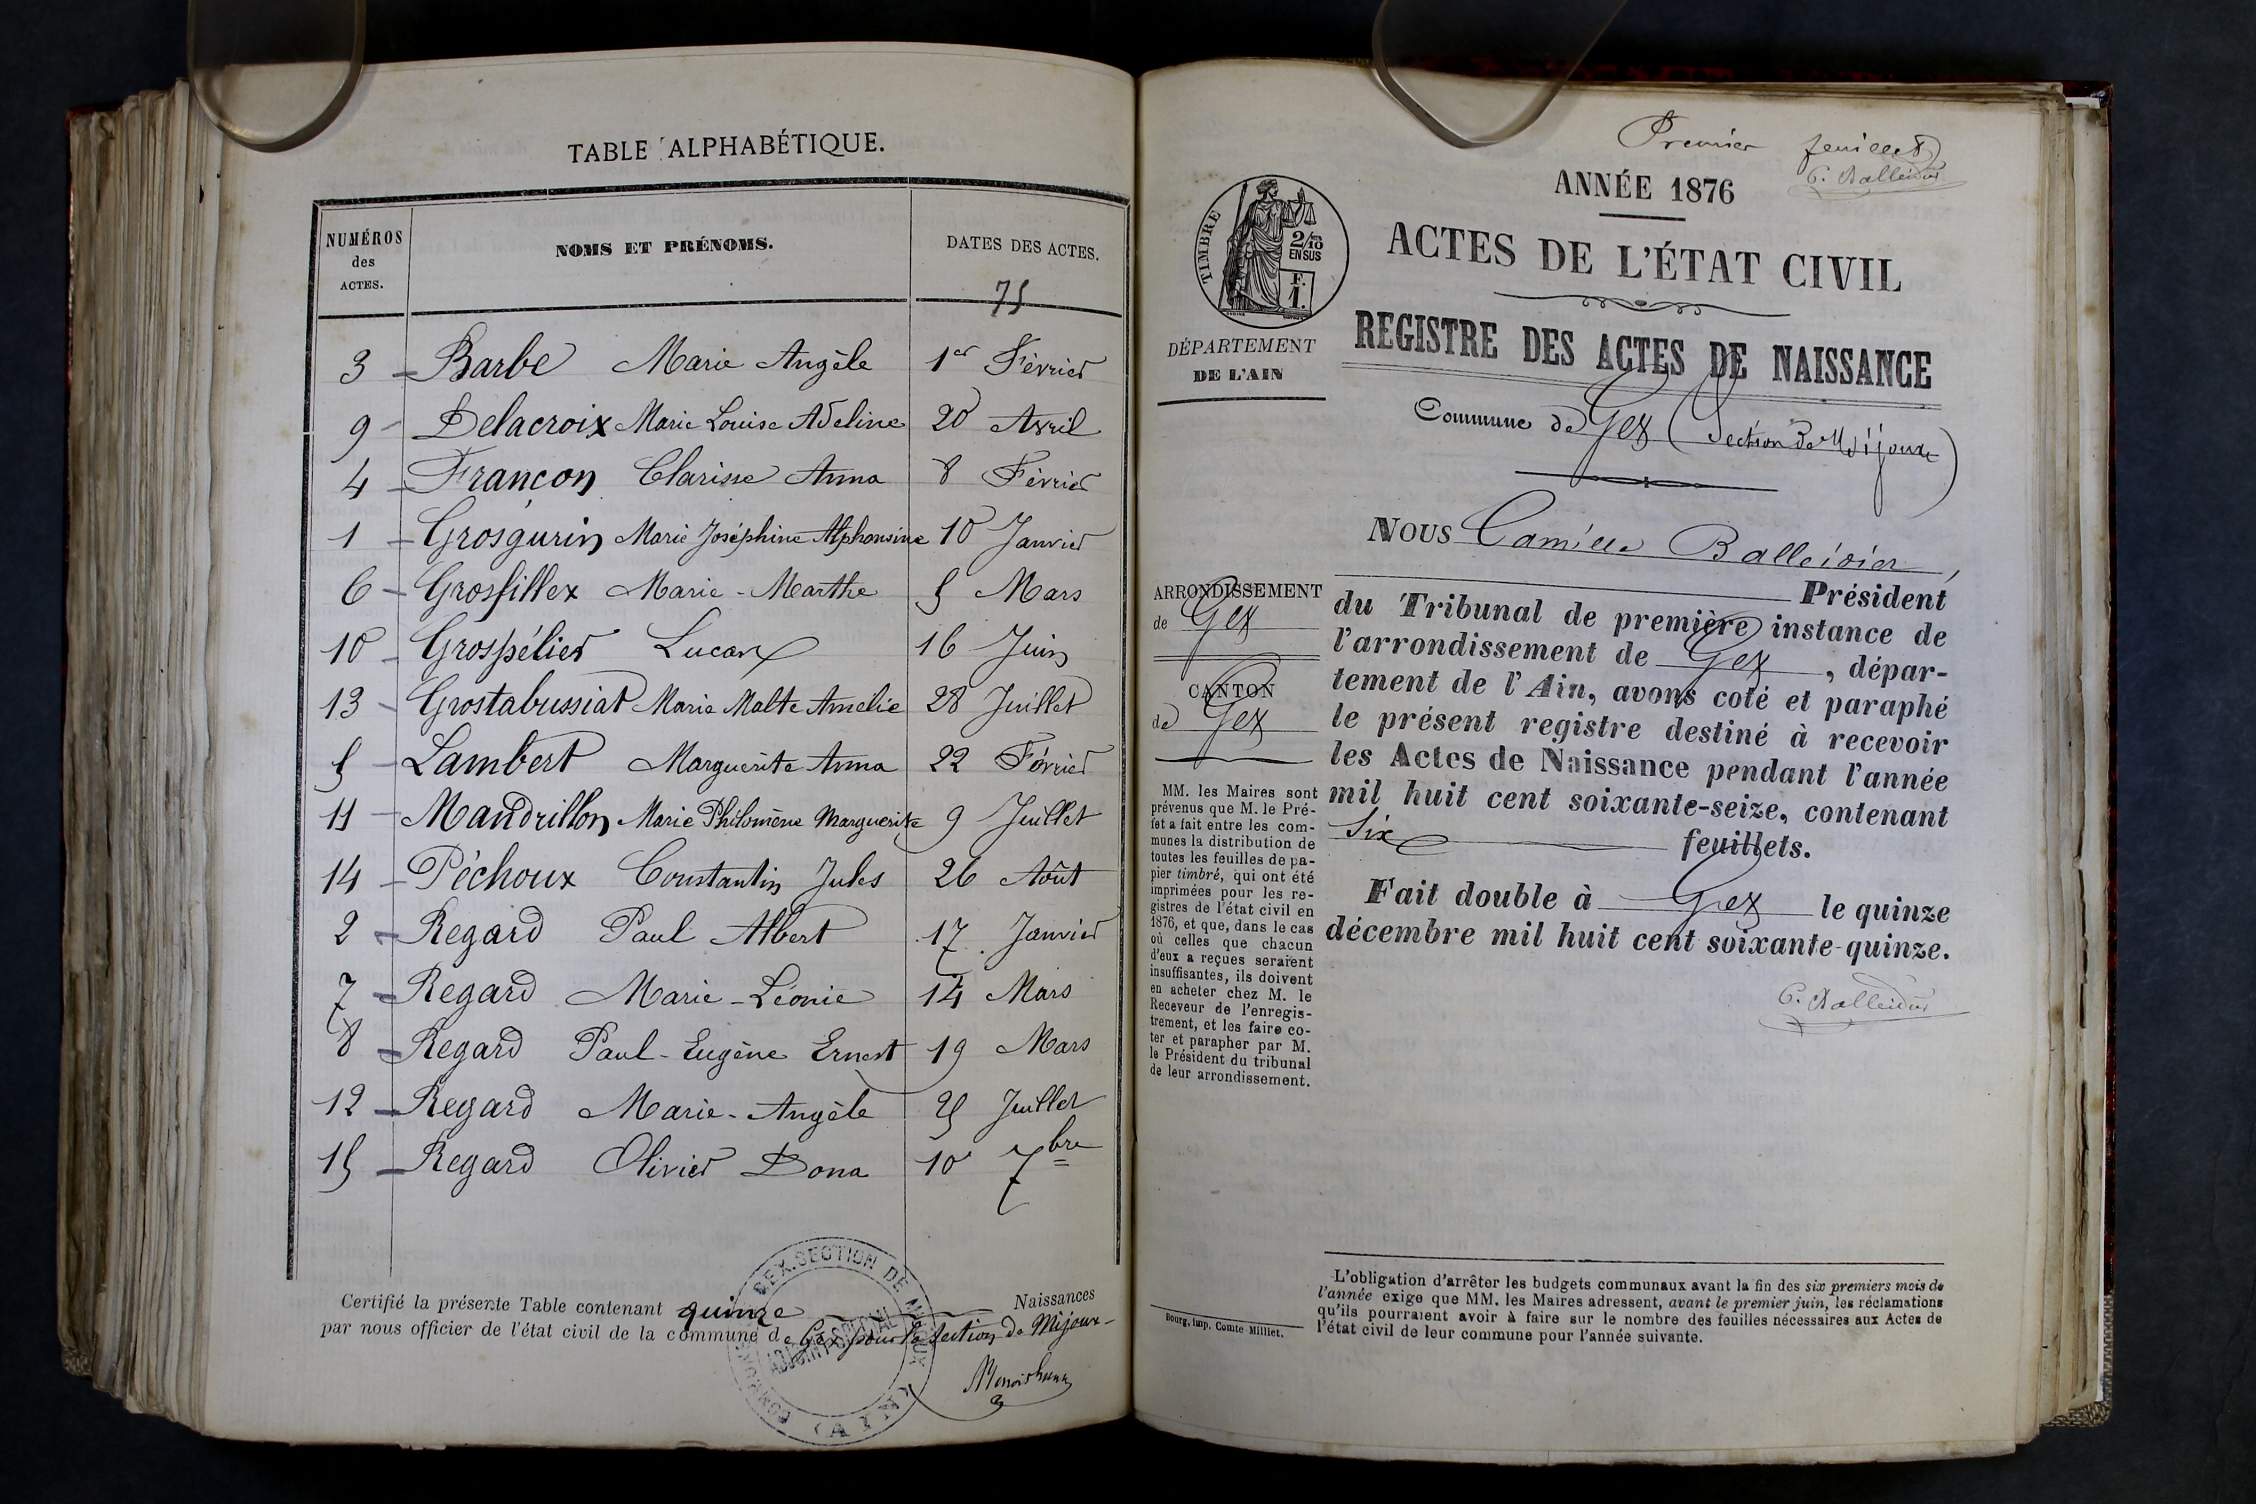 TABLE ALPHABÉTIQUE.
NUMÉROS des ACTES.
NOMS ET PRÉNOMS.
DATES DES ACTES.
75
3 - Barbe Marie Angèle 1er Février
9 - Delacroix Marie Louise Adeline 20 Avril
4 - Françon Clarisse Anna 8 Février
1 - Grosgurin Marie Joséphine Alphonsine 10 Janvier
6 - Grosfillex Marie-Marthe 5 Mars
10 - Grospélier Lucan 16 Juin
13 - Grostabussiat Marie Malte Amélie 28 Juillet
5 - Lambert Marguerite Anna 22 Février
11 - Mandrillon Marie Philomène Marguerite 9 Juillet
14 - Péchoux Constantin Jules 26 Août
2 - Regard Paul Albert 17 Janvier
7 - Regard Marie-Léonie 14 Mars
8 - Regard Paul-Eugène Ernest 19 Mars
12 - Regard Marie-Angèle 25 Juillet
15 - Regard Olivier Dona 10 7bre
Certifié la présente Table contenant quinze Naissances
par nous officier de l'état civil de la commune de Gex pour la section de Mijoux-
GEX.SECTION DE MIJOUX
(AIN)
Premier feuillet
C. Balleidier
ANNÉE 1876
TIMBRE
2/10 EN SUS
F. 1.
ACTES DE L'ÉTAT CIVIL
REGISTRE DES ACTES DE NAISSANCE
DÉPARTEMENT
DE L'AIN
Commune de Gex (Section de Mijoux)
NOUS Camille Balleidier,
Président
du Tribunal de première instance de
l'arrondissement de Gex, dépar-
tement de l'Ain, avons coté et paraphé
le présent registre destiné à recevoir
les Actes de Naissance pendant l'année
mil huit cent soixante-seize, contenant
Six feuillets.
Fait double à Gex le quinze
décembre mil huit cent soixante-quinze.
C. Balleidier
ARRONDISSEMENT
de Gex
CANTON
de Gex
MM. les Maires sont
prévenus que M. le Pré-
fet a fait entre les com-
munes la distribution de
toutes les feuilles de pa-
pier timbré, qui ont été
imprimées pour les re-
gistres de l'état civil en
1876, et que, dans le cas
où celles que chacun
d'eux a reçues seraient
insuffisantes, ils doivent
en acheter chez M. le
Receveur de l'enregis-
trement, et les faire co-
ter et parapher par M.
le Président du tribunal
de leur arrondissement.
Bourg, imp. Comte Milliet.
L'obligation d'arrêter les budgets communaux avant la fin des six premiers mois de
l'année exige que MM. les Maires adressent, avant le premier juin, les réclamations
qu'ils pourraient avoir à faire sur le nombre des feuilles nécessaires aux Actes de
l'état civil de leur commune pour l'année suivante.